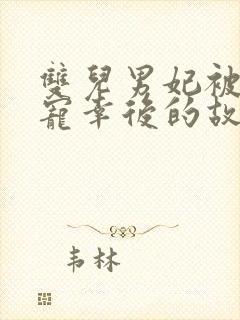 雙兒男妃被
寵幸後的故
韦林